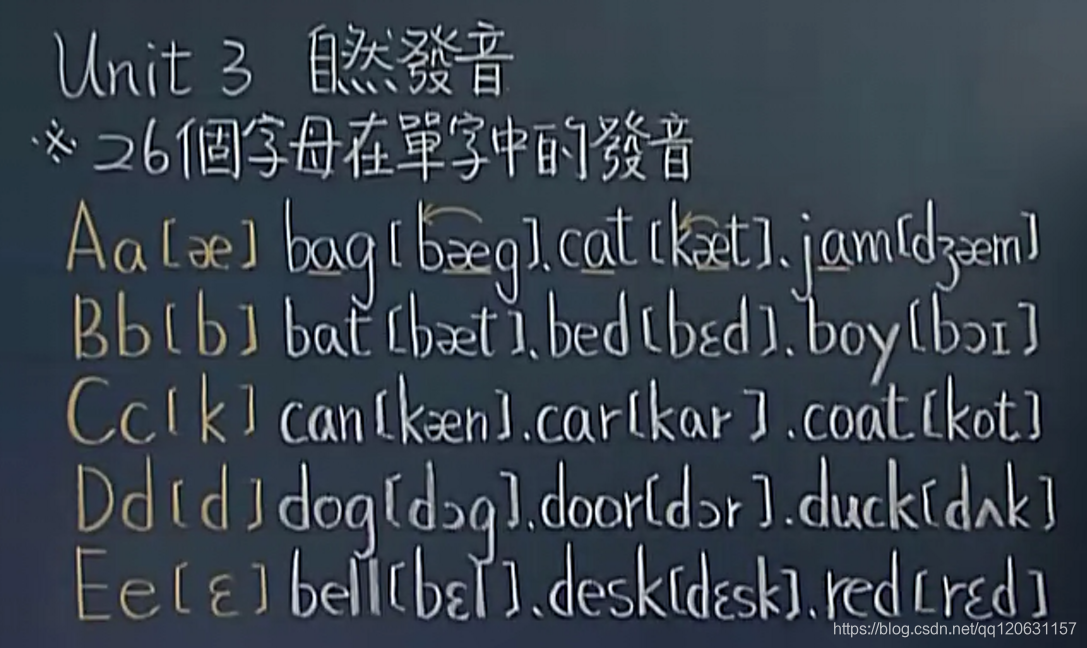 Unit 3 自然發音
※ 26個字母在單字中的發音
Aa [æ] bag [bæg]、cat [kæt]、jam [dʒæm]
Bb [b] bat [bæt]、bed [bɛd]、boy [bɔɪ]
Cc [k] can [kæn]、car [kar]、coat [kot]
Dd [d] dog [dɔg]、door [dɔr]、duck [dʌk]
Ee [ɛ] bell [bɛl]、desk [dɛsk]、red [rɛd]
https://blog.csdn.net/qq120631157